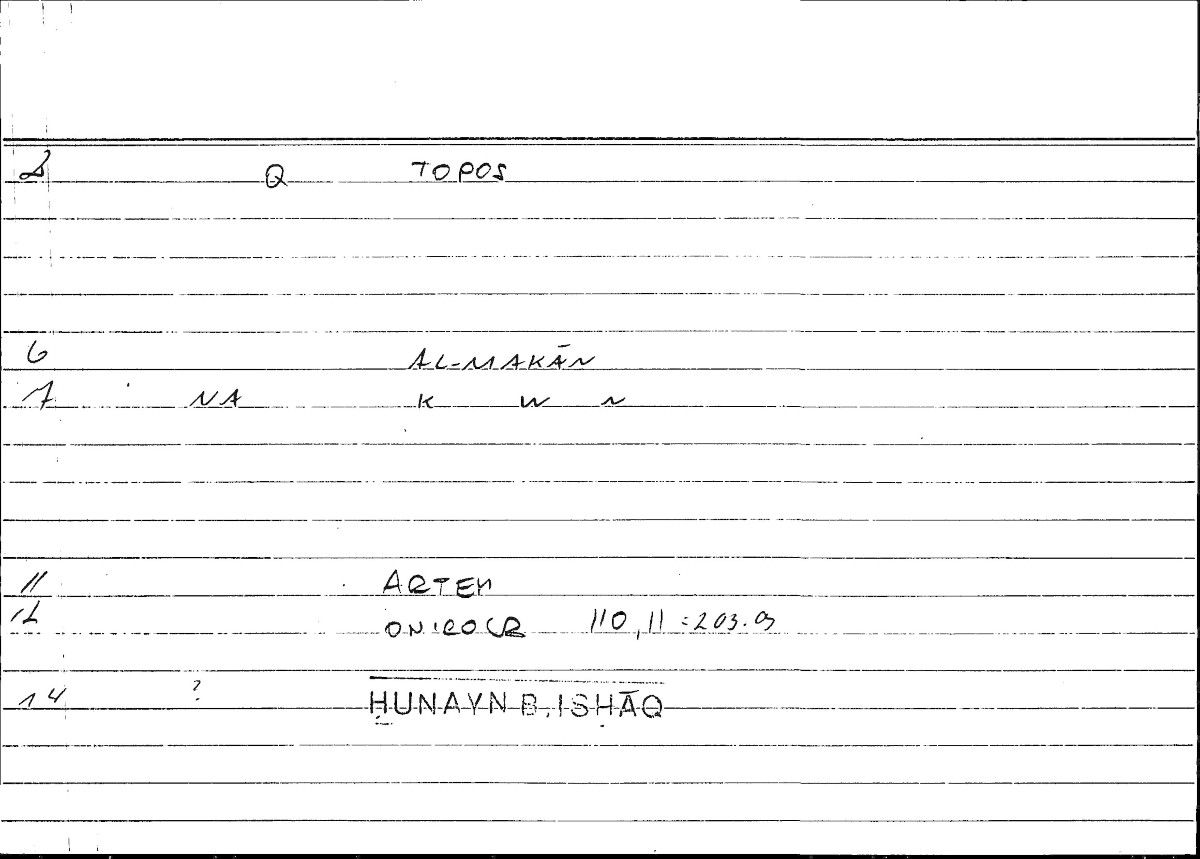 2 Q TOPOS
6 AL-MAKĀN
7 NA K W N
11 ARTEM
12 ONIROCR 110,11 = 203.9
14 ? ḤUNAYN B. ISḤĀQ